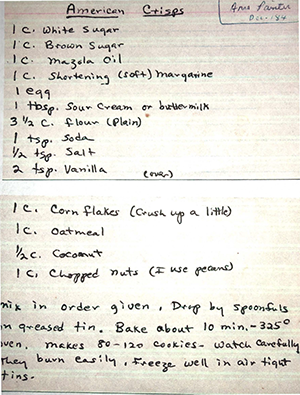 American Crisps
Dec. 184
1 c. White Sugar
1 c. Brown Sugar
1 c. Mazola Oil
1 c. Shortening (soft) margarine
1 egg
1 tbsp. Sour Cream or buttermilk
3 1/2 c. flour (Plain)
1 tsp. Soda
1/2 tsp. Salt
2 tsp. Vanilla
(over)
1 c. Corn flakes (Crush up a little)
1 c. Oatmeal
1/2 c. Coconut
1 c. Chopped nuts (I use pecans)
mix in order given. Drop by spoonfuls
on greased tin. Bake about 10 min. - 325°
oven. makes 80-120 cookies - Watch carefully
they burn easily. Freeze well in air tight
tins.